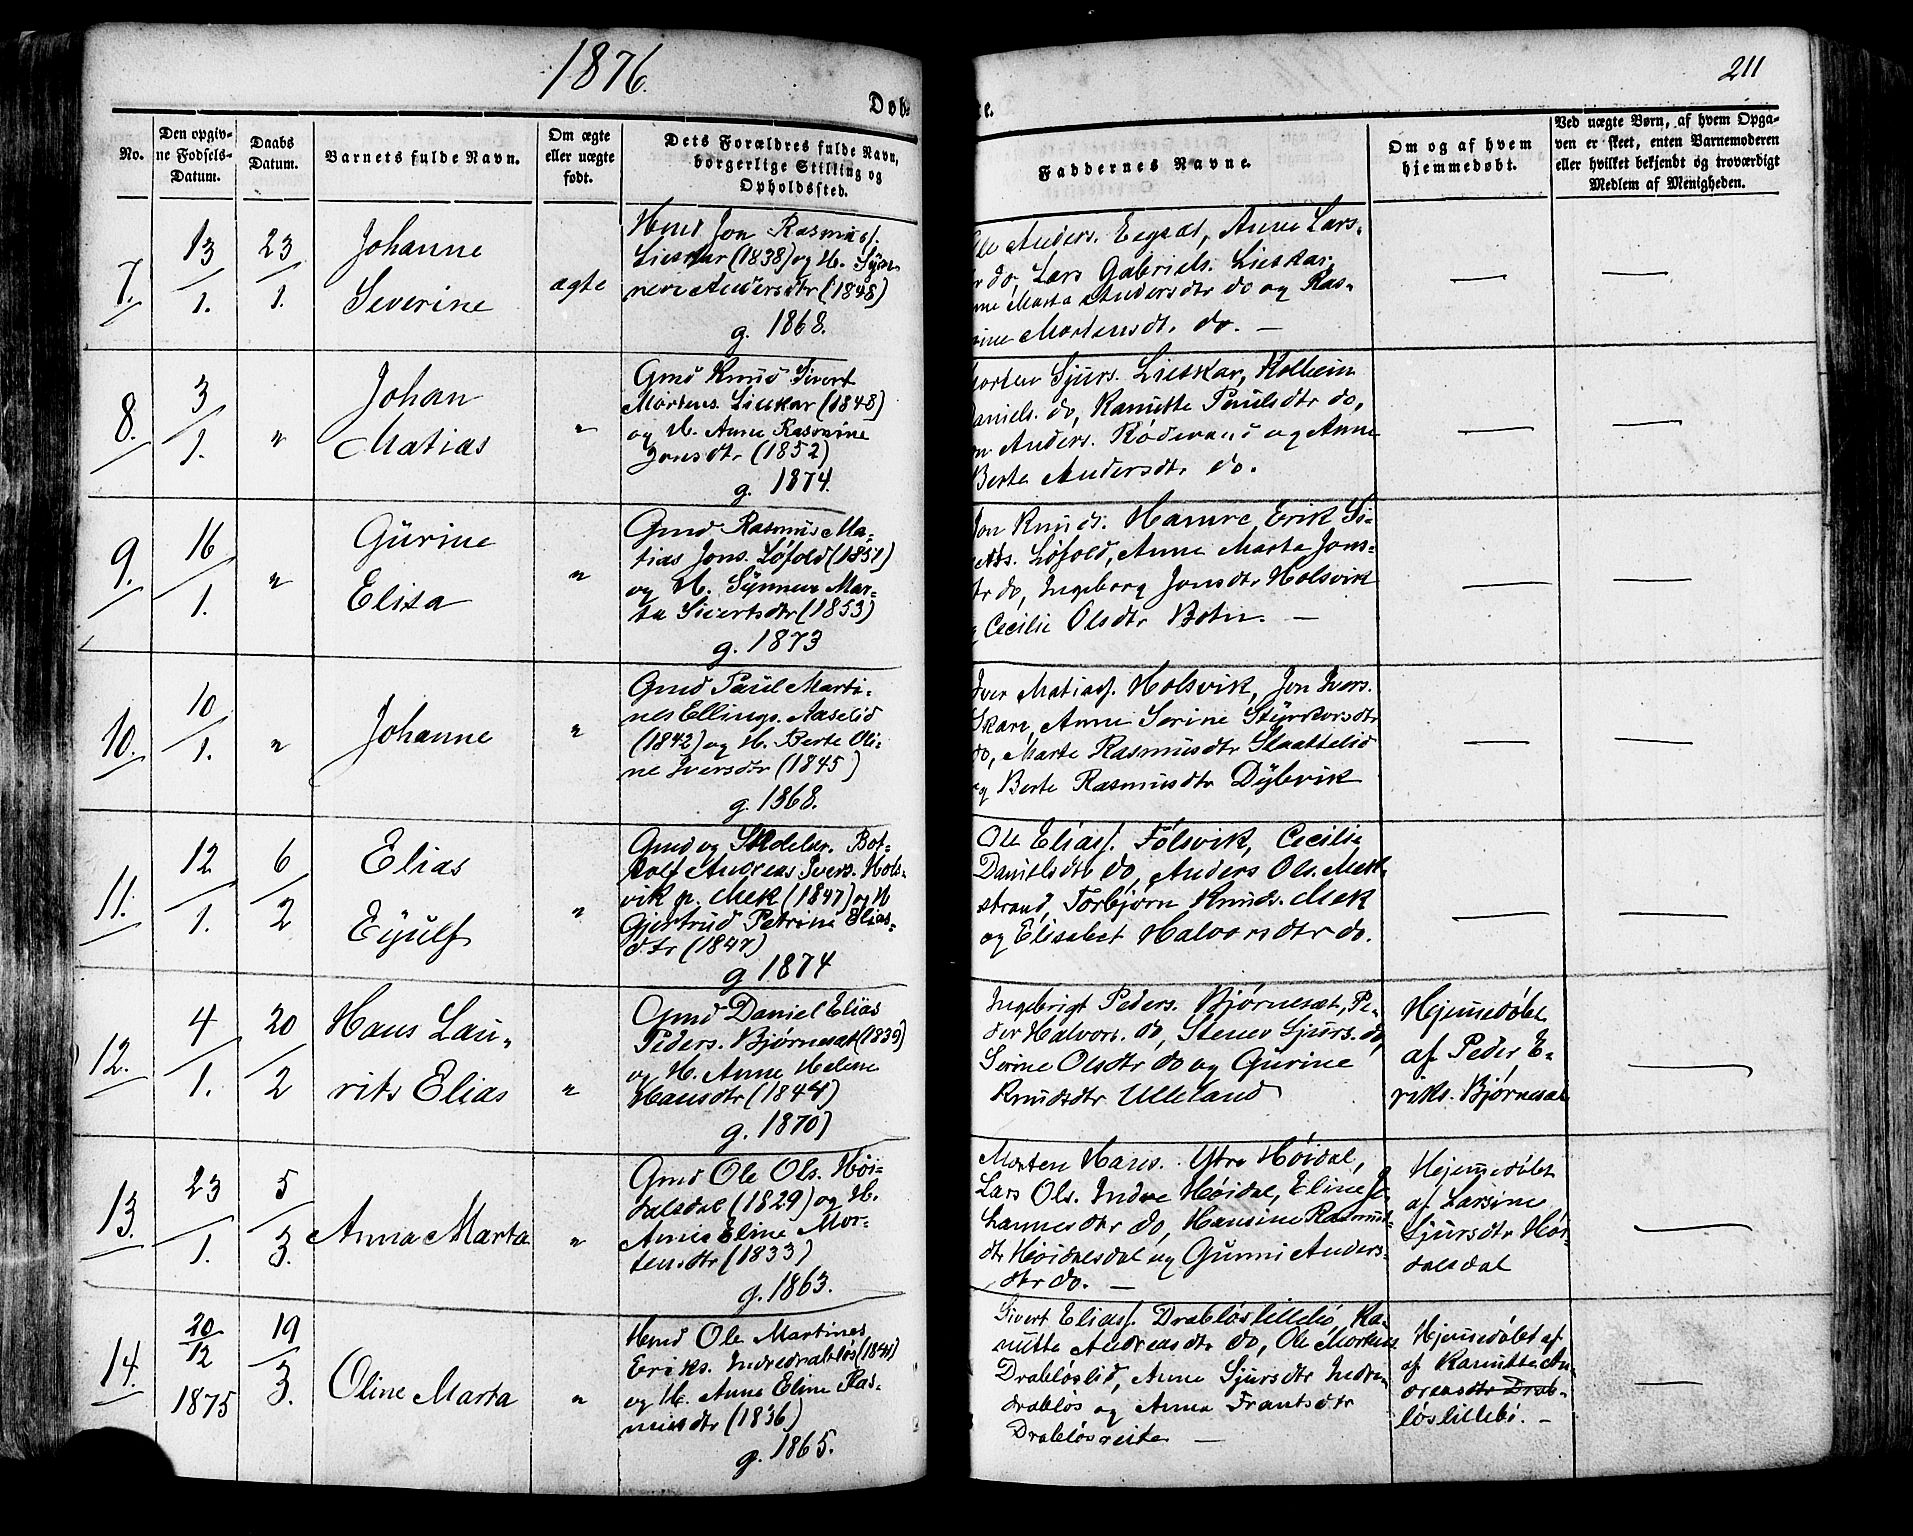 1876.
211
Døb-
te.
No.
Den opgiv-
ne Fødsels-
Datum.
Daabs
Datum.
Barnets fulde Navn.
Om ægte
eller uægte
født.
Dets Forældres fulde Navn,
borgerlige Stilling og
Opholdssted.
Faddernes Navne.
Om og af hvem
hjemmedøbt.
Ved uægte Børn, af hvem Opga-
ven er skeet, enten Barnemoderen
eller hvilket bekjendt og troværdigt
Medlem af Menigheden.
7.
13/1.
23/1.
Johanne
Severine
ægte
Hmd Jon Rasmuss.
Lieskar (1838) og H. Syn-
neve Andersdtr (1848)
g. 1868.
Ole Anders. Eegsæt, Anne Lars-
dtr do, Lars Gabriels. Lieskar,
Anne Marta Andersdtr do og Ras-
mine Mortensdtr do. —
—
—
8.
3/1.
"
Johan
Matias
"
Gmd Knud Sivert
Mortens. Lieskar (1848)
og H. Anne Rasmine
Jonsdtr (1852)
g. 1874.
Morten Sjurs. Lieskar, Kolbein
Daniels. do, Kanutte Paulsdtr do,
Anders. Rødsvand og Anne
Berte Andersdtr do.
—
—
9.
16/1.
"
Gurine
Elisa
"
Gmd Rasmus Ma-
tias Jons. Løfold (1851)
og H. Synneve Mar-
ta Sivertsdtr (1853)
g. 1873
Jon Knuds. Hamre, Erik Si-
verts. Løfold, Anne Marta Jons-
dtr do, Ingeborg Jonsdtr Holsvik
og Cecilie Olsdtr Botn. —
—
—
10.
10/1.
"
Johanne
"
Gmd Paul Marti-
nes Ellings. Aaselid
(1842) og H. Berte Oli-
ne Iversdtr (1845)
g. 1868.
Iver Matiass. Holsvik, Jon Ivers.
Skare, Anne Serine Styrkorsdtr
do, Marte Rasmusdtr Slaattelid
og Berte Rasmusdtr Dybvik
—
—
11.
12/1.
6/2
Elias
Eyulf
"
Gmd og Skolelær. Bot-
holf Andreas Ivers. Hols-
vik p. Mek (1847) og H
Gjertrud Petrine Elias-
dtr (1847)
g. 1874
Ole Eliass. Følsvik, Cecilie
Danielsdtr do, Anders Ols. Mek-
strand, Torbjørn Knuds. Mek
og Elisabet Halvorsdtr do.
—
—
12.
4/1.
20/2
Hans Lau-
rits Elias
"
Gmd Daniel Elias
Peders. Bjørnesæt (1839)
og H. Anne Helene
Hansdtr (1844)
g. 1870)
Ingebrigt Peders. Bjørnesæt, Pe-
der Halvors. do, Stener Sjurs. do,
Serine Olsdtr do og Gurine
Knudsdtr Ulleland
Hjemmedøbt
af Peder E-
riks. Bjørnesæt
—
13.
23/1.
5/3.
Anna Marta
"
Gmd Ole Ols. Høi-
dalsdal (1829) og H.
Anne Eline Mor-
tensdtr (1833)
g. 1863.
Morten Hans. Ytre Høidal,
Lars Ols. Indre Høidal, Eline Jo-
hannesdtr do, Hansine Rasmus-
dtr Høidalsdal og Gunni Anders-
dtr do. —
Hjemmedøbt
af Larsine
Sjursdtr Høi-
dalsdal
—
14.
20/12
1875
19/3.
Oline Marta
"
Hmd Ole Martines
Eriks. Indredrabløs (1841)
og H. Anne Eline Ras-
musdtr (1836)
g. 1865.
Sivert Eliass. Drabløslillebø, Ka-
nutte Andreasdtr do, Ole Mortens.
Drabløslid, Anne Sjursdtr Indre-
drabløs og Anna Frantsdtr
Drabløsreite —
Hjemmedøbt af
af Kanutte An-
dreasdtr Drab-
løslillebø. —
—